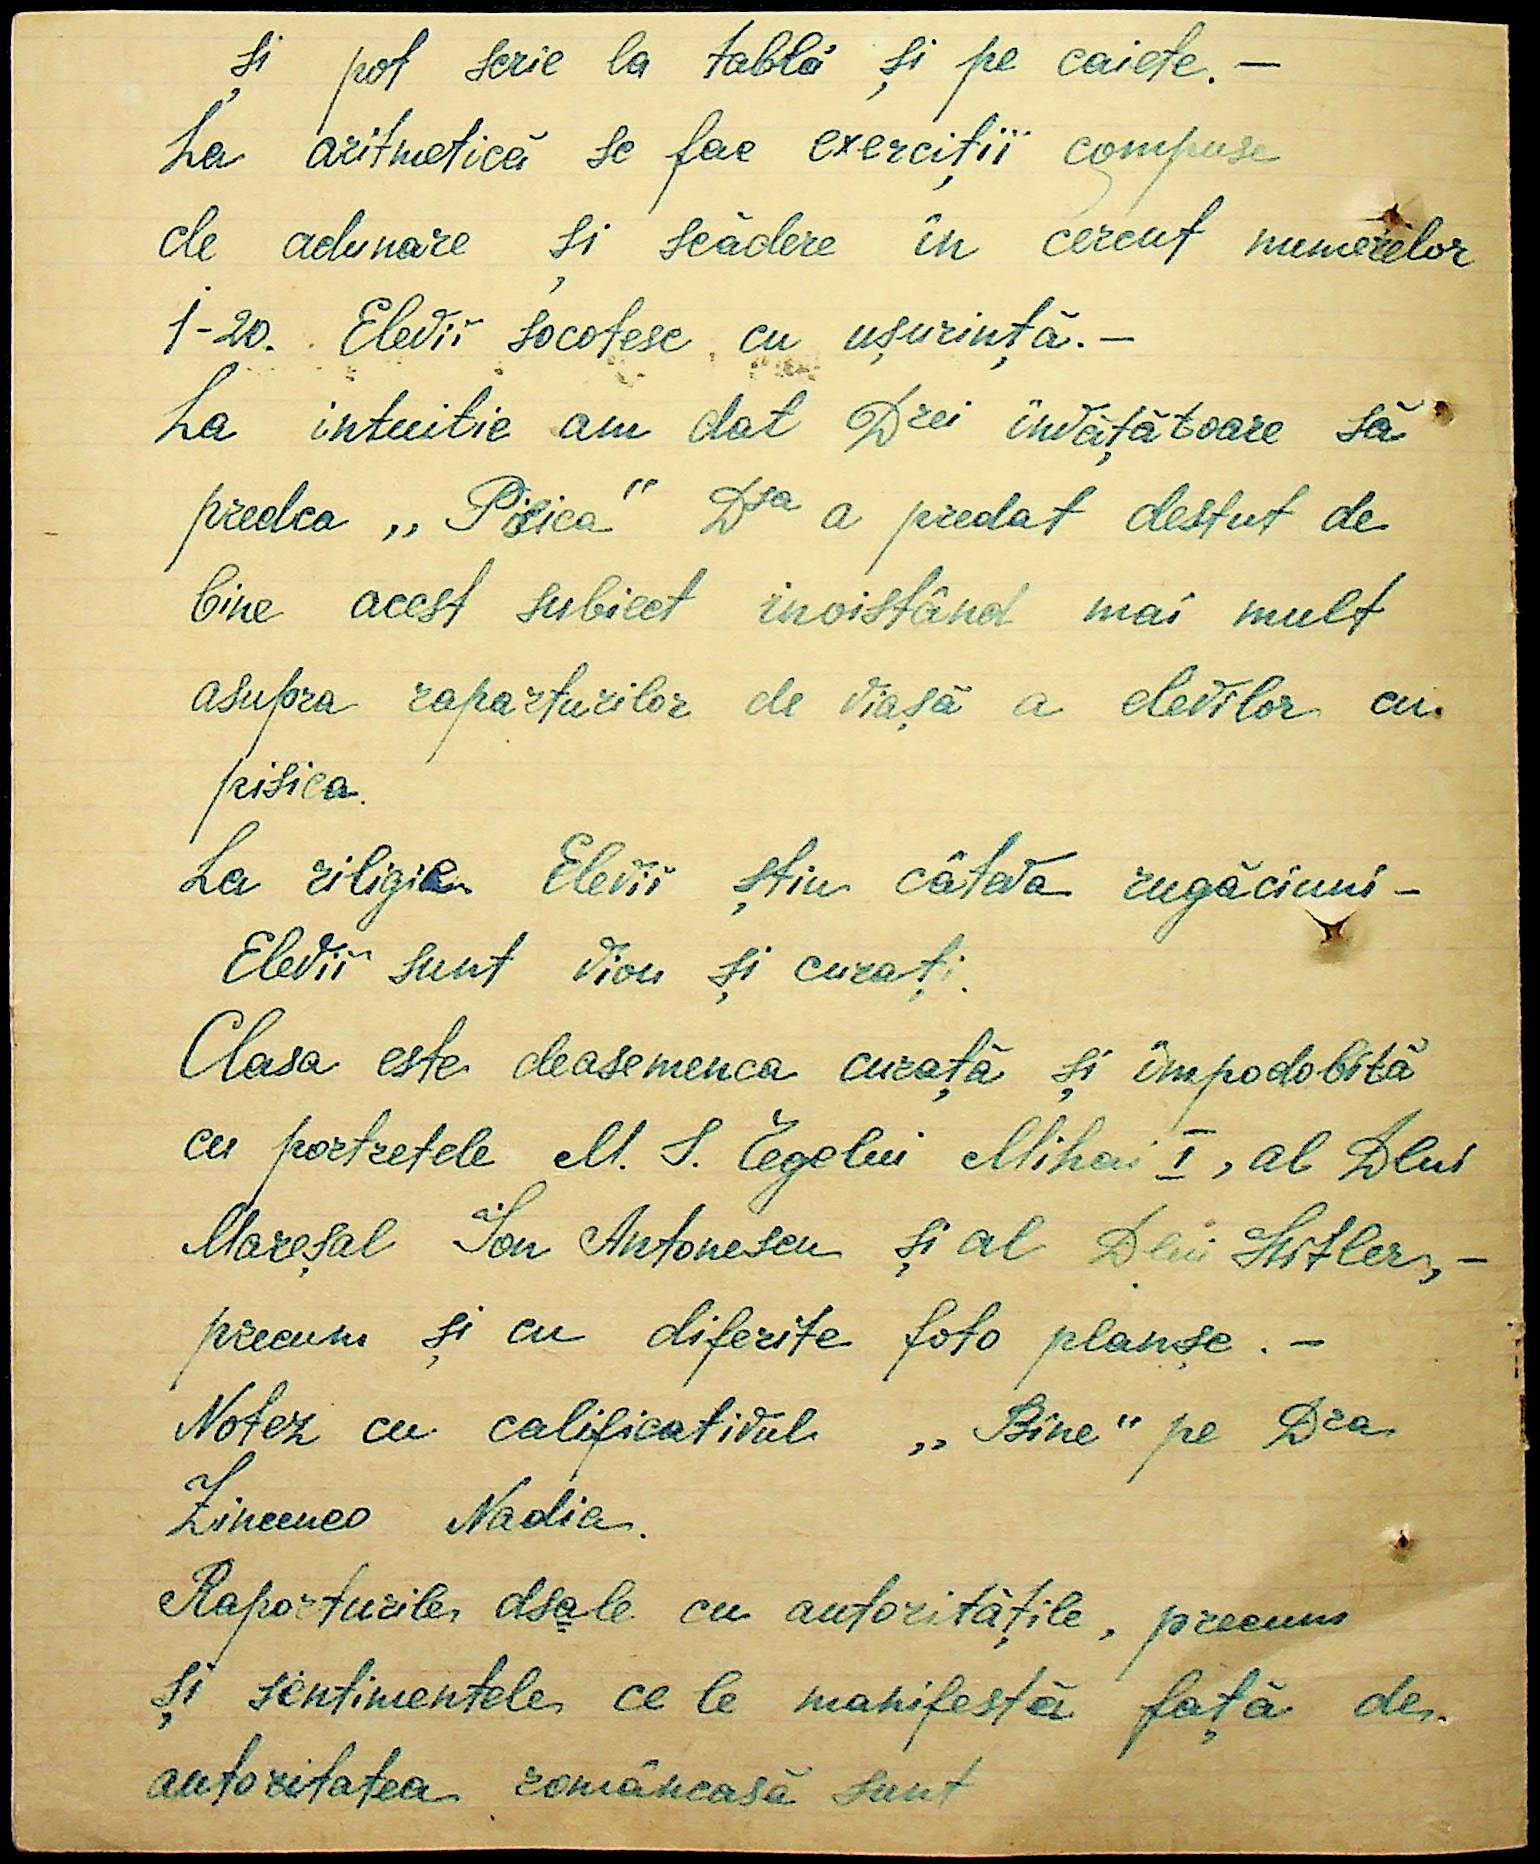 și pot scrie la tablă și pe caiete. —
La aritmetică se fac exerciții compuse
de adunare și scădere în cercul numerelor
1-20. Elevii socotesc cu ușurință. —
La intuitie am dat Drei învățătoare să
predea „Pisica" Dsa a predat destul de
bine acest subiect insistând mai mult
asupra raporturilor de viață a elevilor cu
pisica.
La riligie Elevii știu câteva rugăciuni —
Elevii sunt vioi și curați.
Clasa este deasemenea curată și împodobită
cu portretele M. S. Regelui Mihai I, al Dlui
Mareșal Ion Antonescu și al Dlui Hitler, —
precum și cu diferite foto planșe. —
Notez cu calificativul „Bine" pe Dra
Nadia.
Raporturile dsale cu autoritățile, precum
și sentimentele ce le manifestă față de
autoritatea românească sunt